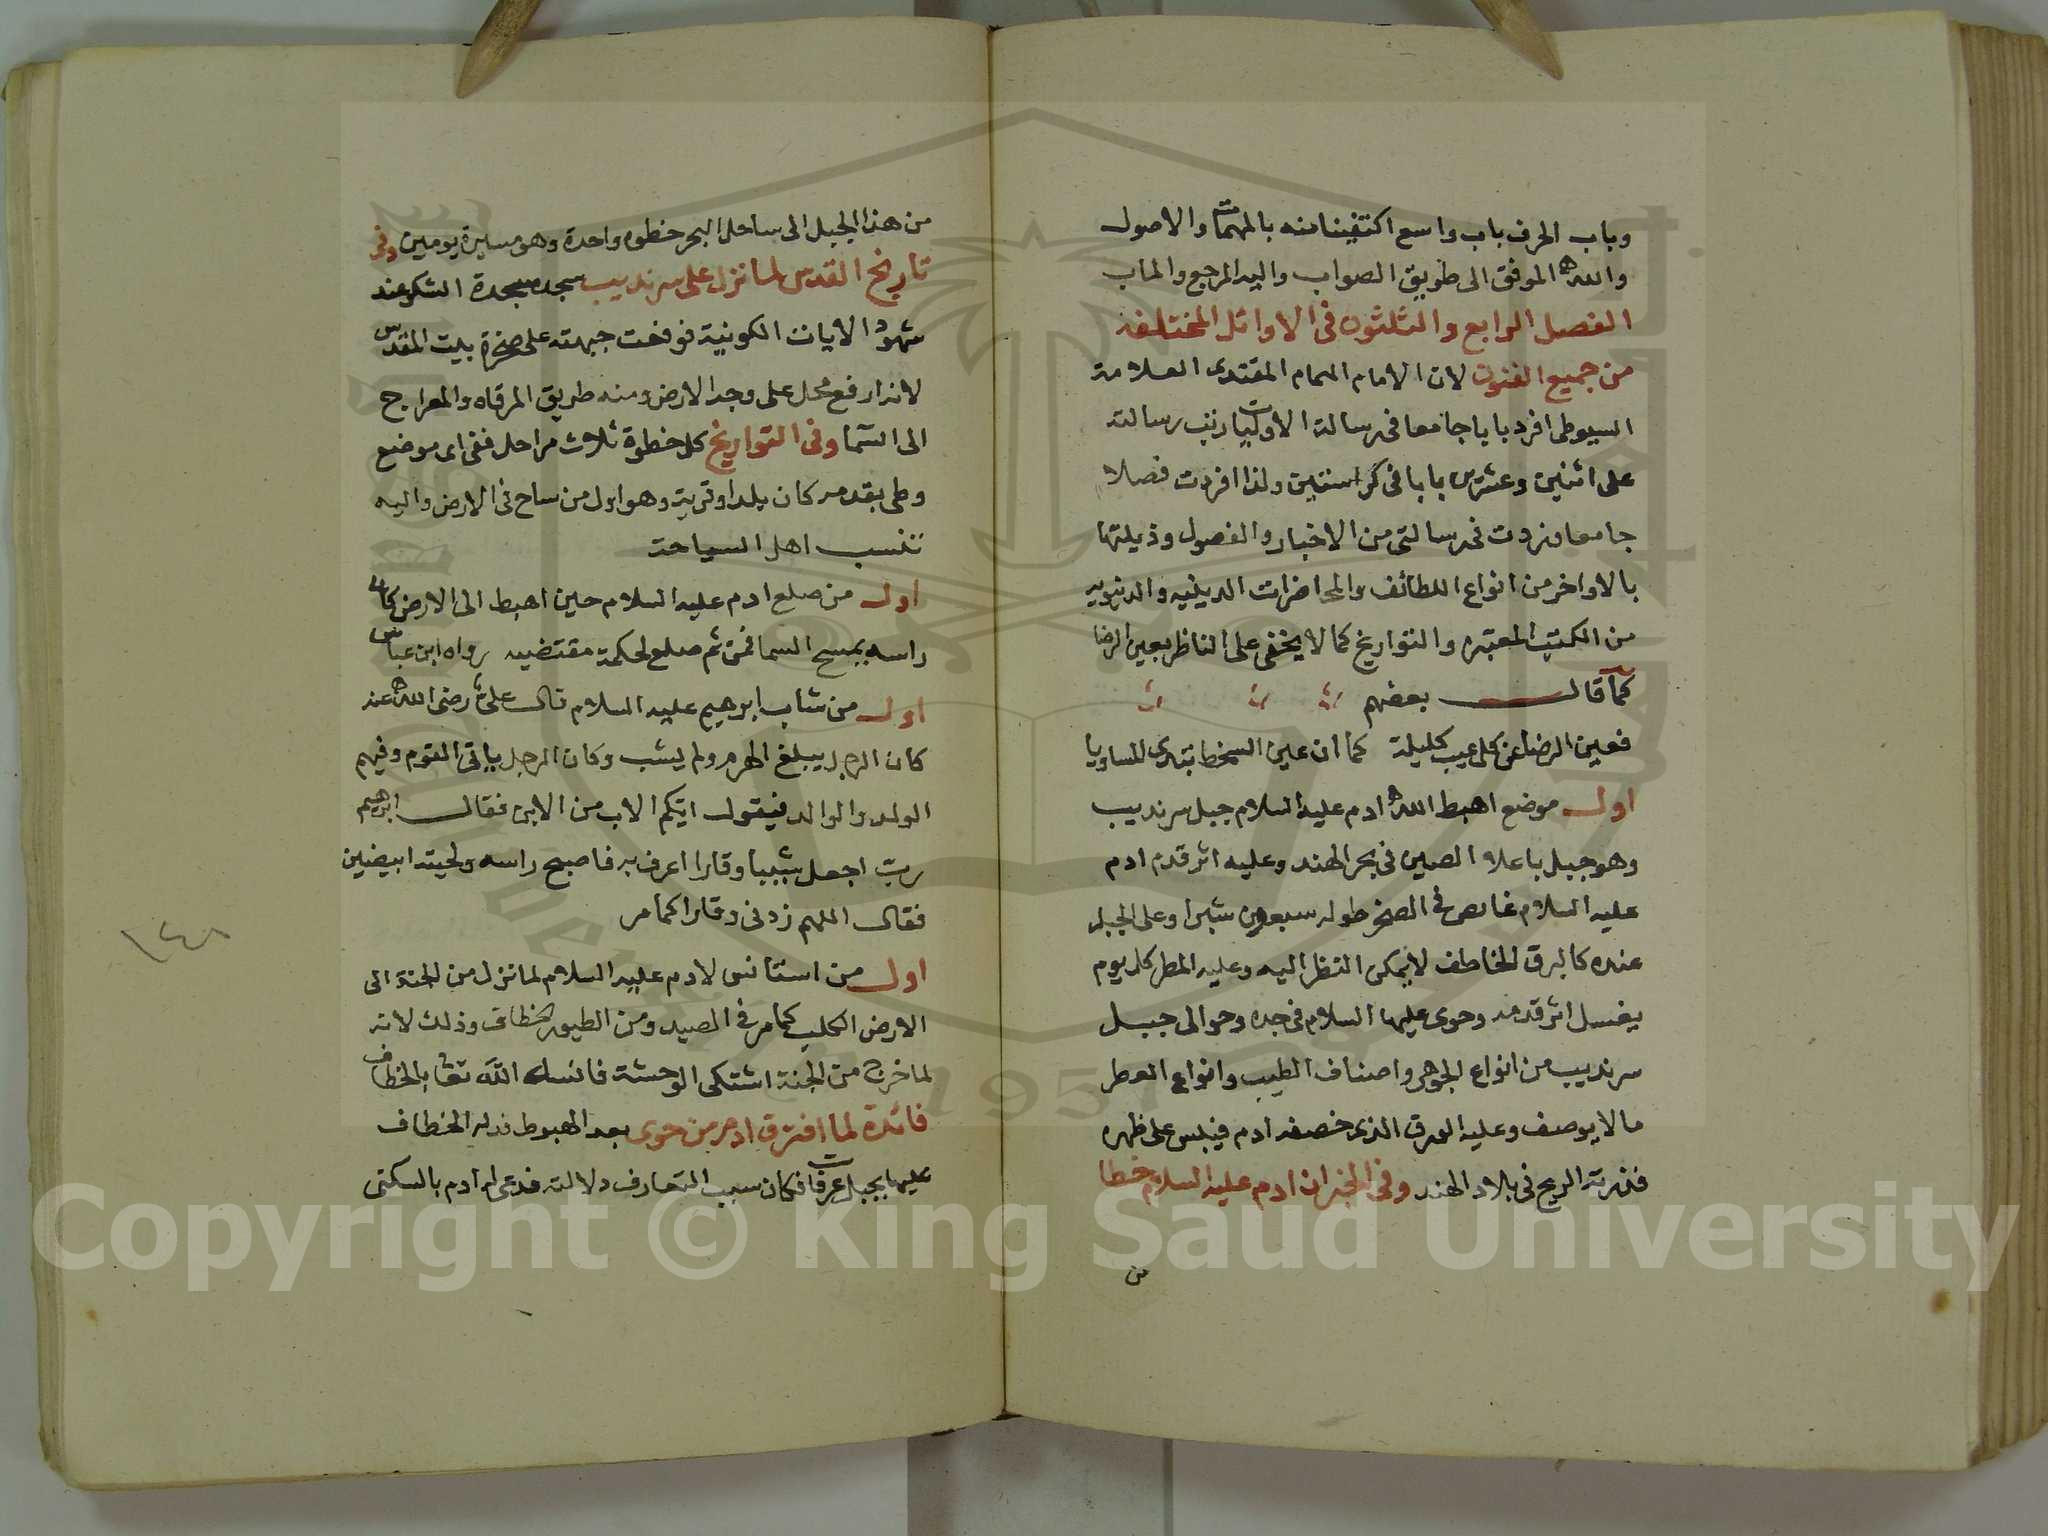 وباب الحرف باب واسع اكتفينا منه بالمهمات والاصول
والله الموفق الى طريق الصواب واليه المرجع والماب
الفصل الرابع والثلثون فى الاوائل المختلفه
من جميع الفنون لان الامام الهمام المقتدى العلامة
السيوطى افرد بابا جامعا فى رسالة الاوليات رتب رسالته
على اثنين وعشرين بابا فى كراستين ولذا افردت فصلا
جامعا وزدت فى رسالتى من الاخبار والفصول وذيلتها
بالاواخر من انواع اللطائف والمحاضرات الدينيه والدنيويه
من الكتب المعتبره والتواريخ كما لا يخفى على الناظر بعين الرضا
كما قال بعضهم
فعين الرضا عن كل عيب كليلة كما ان عين السخط تبدى المساويا
اول موضع اهبط الله ادم عليه السلام جبل سرنديب
وهو جبل باعلا الصين فى بحر الهند وعليه اثر قدم ادم
عليه السلام غايص فى الصخر طوله سبعين شبرا وعلى الجبل
عنده كالبرق الخاطف لا يمكن النظر اليه وعليه المطر كل يوم
يغسل اثر قدمه وحوى عليها السلام فى جده وحوالى جبل
سرنديب من انواع الجوهر واصناف الطيب وانواع العطر
ما لا يوصف وعليه الورق الذى خصفه ادم فيبس على ظهره
فذرته الريح فى بلاد الهند وفى الخبر ان ادم عليه السلام خطا
من
من هذا الجبل الى ساحل البحر خطوه واحدة وهو مسيرة يومين وفى
تاريخ القدس لما نزل على سرنديب سجد سجدة الشكر عند
شهود الايات الكونية فوقعت جبهته على صخرة بيت المقدس
لانه ارفع محل على وجه الارض ومنه طريق المرقاه والمعراج
الى السما وفى التواريخ كل خطوة ثلاث مراحل ففى اى موضع
وطى بقدمه كان بلدا وقرية وهو اول من ساح فى الارض واليه
تنسب اهل السياحة
اول من صلع ادم عليه السلام حين اهبط الى الارض كان
راسه يمسح السما فمن ثم صلع لحكمة مقتضيه رواه ابن عباس
اول من شاب ابرهيم عليه السلام قال على رضى الله عنه
كان الرجل يبلغ الهرم ولم يشب وكان الرجل ياتى القوم وفيهم
الولد والوالد فيقول ايكم الاب من الابن فقال ابرهيم
رب اجعل شيبا وقارا اعرف به فاصبح راسه ولحيته ابيضين
فقال اللهم زدنى وقارا كما مر
اول من استانس لادم عليه السلام لما نزل من الجنة الى
الارض الكلب كما مر فى الصيد ومن الطيور الخطاف وذلك لانه
لما خرج من الجنة اشتكى الوحشة فانسه الله تعا بالخطاف
فائدة لما افترق ادم من حوى بعد الهبوط فدله الخطاف
عليها بجبل عرفات فكان سبب التعارف دلالته فدعى له ادم بالسكنى
١٤٨
Copyright © King Saud University
1957